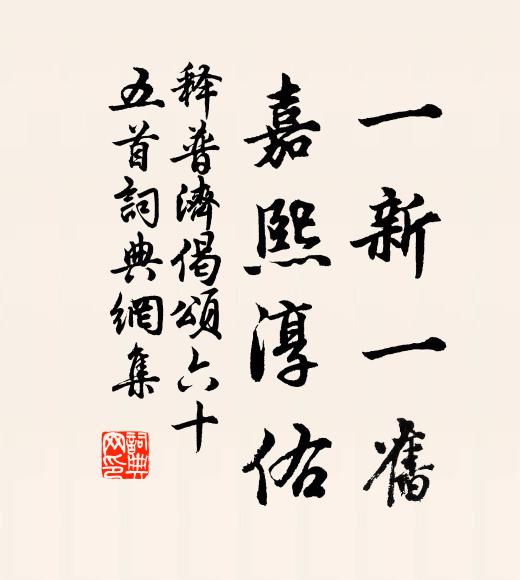 一新一舊
嘉熙淳佑
释普濟偈頌六十
五首詞典網集
詞典网印